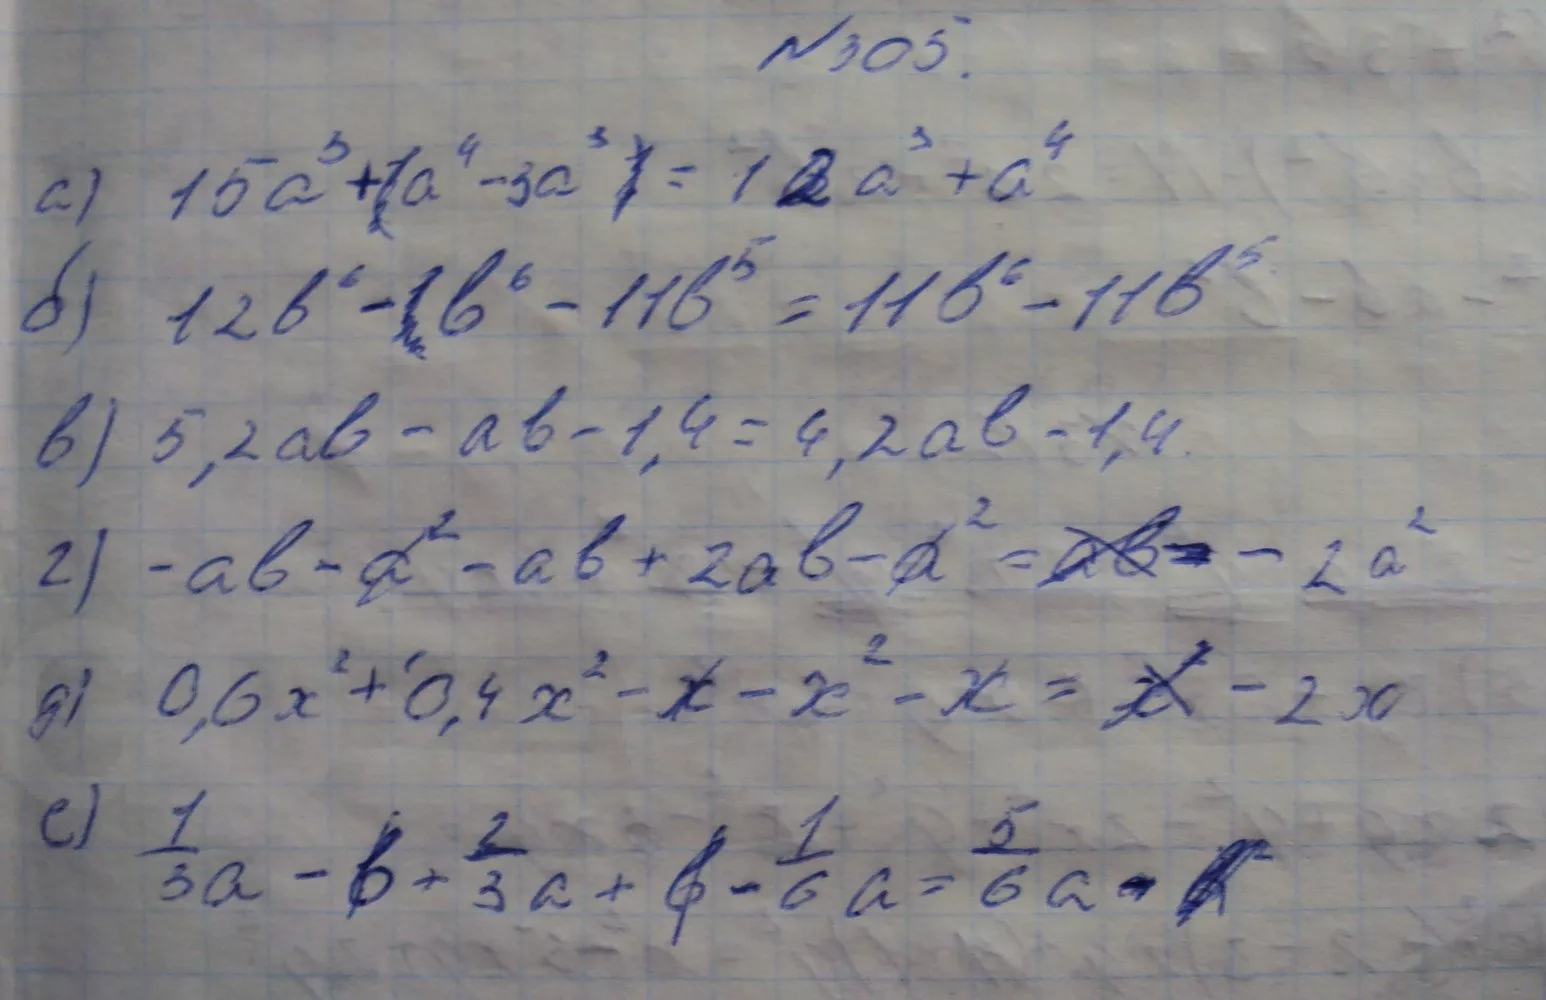 №305.
а) 15a³+a⁴-3a³=12a³+a⁴
б) 12b⁶-b⁶-11b⁵=11b⁶-11b⁵
в) 5,2ab-ab-1,4=4,2ab-1,4.
г) -ab-a²-ab+2ab-a²=-2a²
д) 0,6x²+0,4x²-x-x²-x=-2x
е) 1/3a-b+2/3a+b-1/6a=5/6a